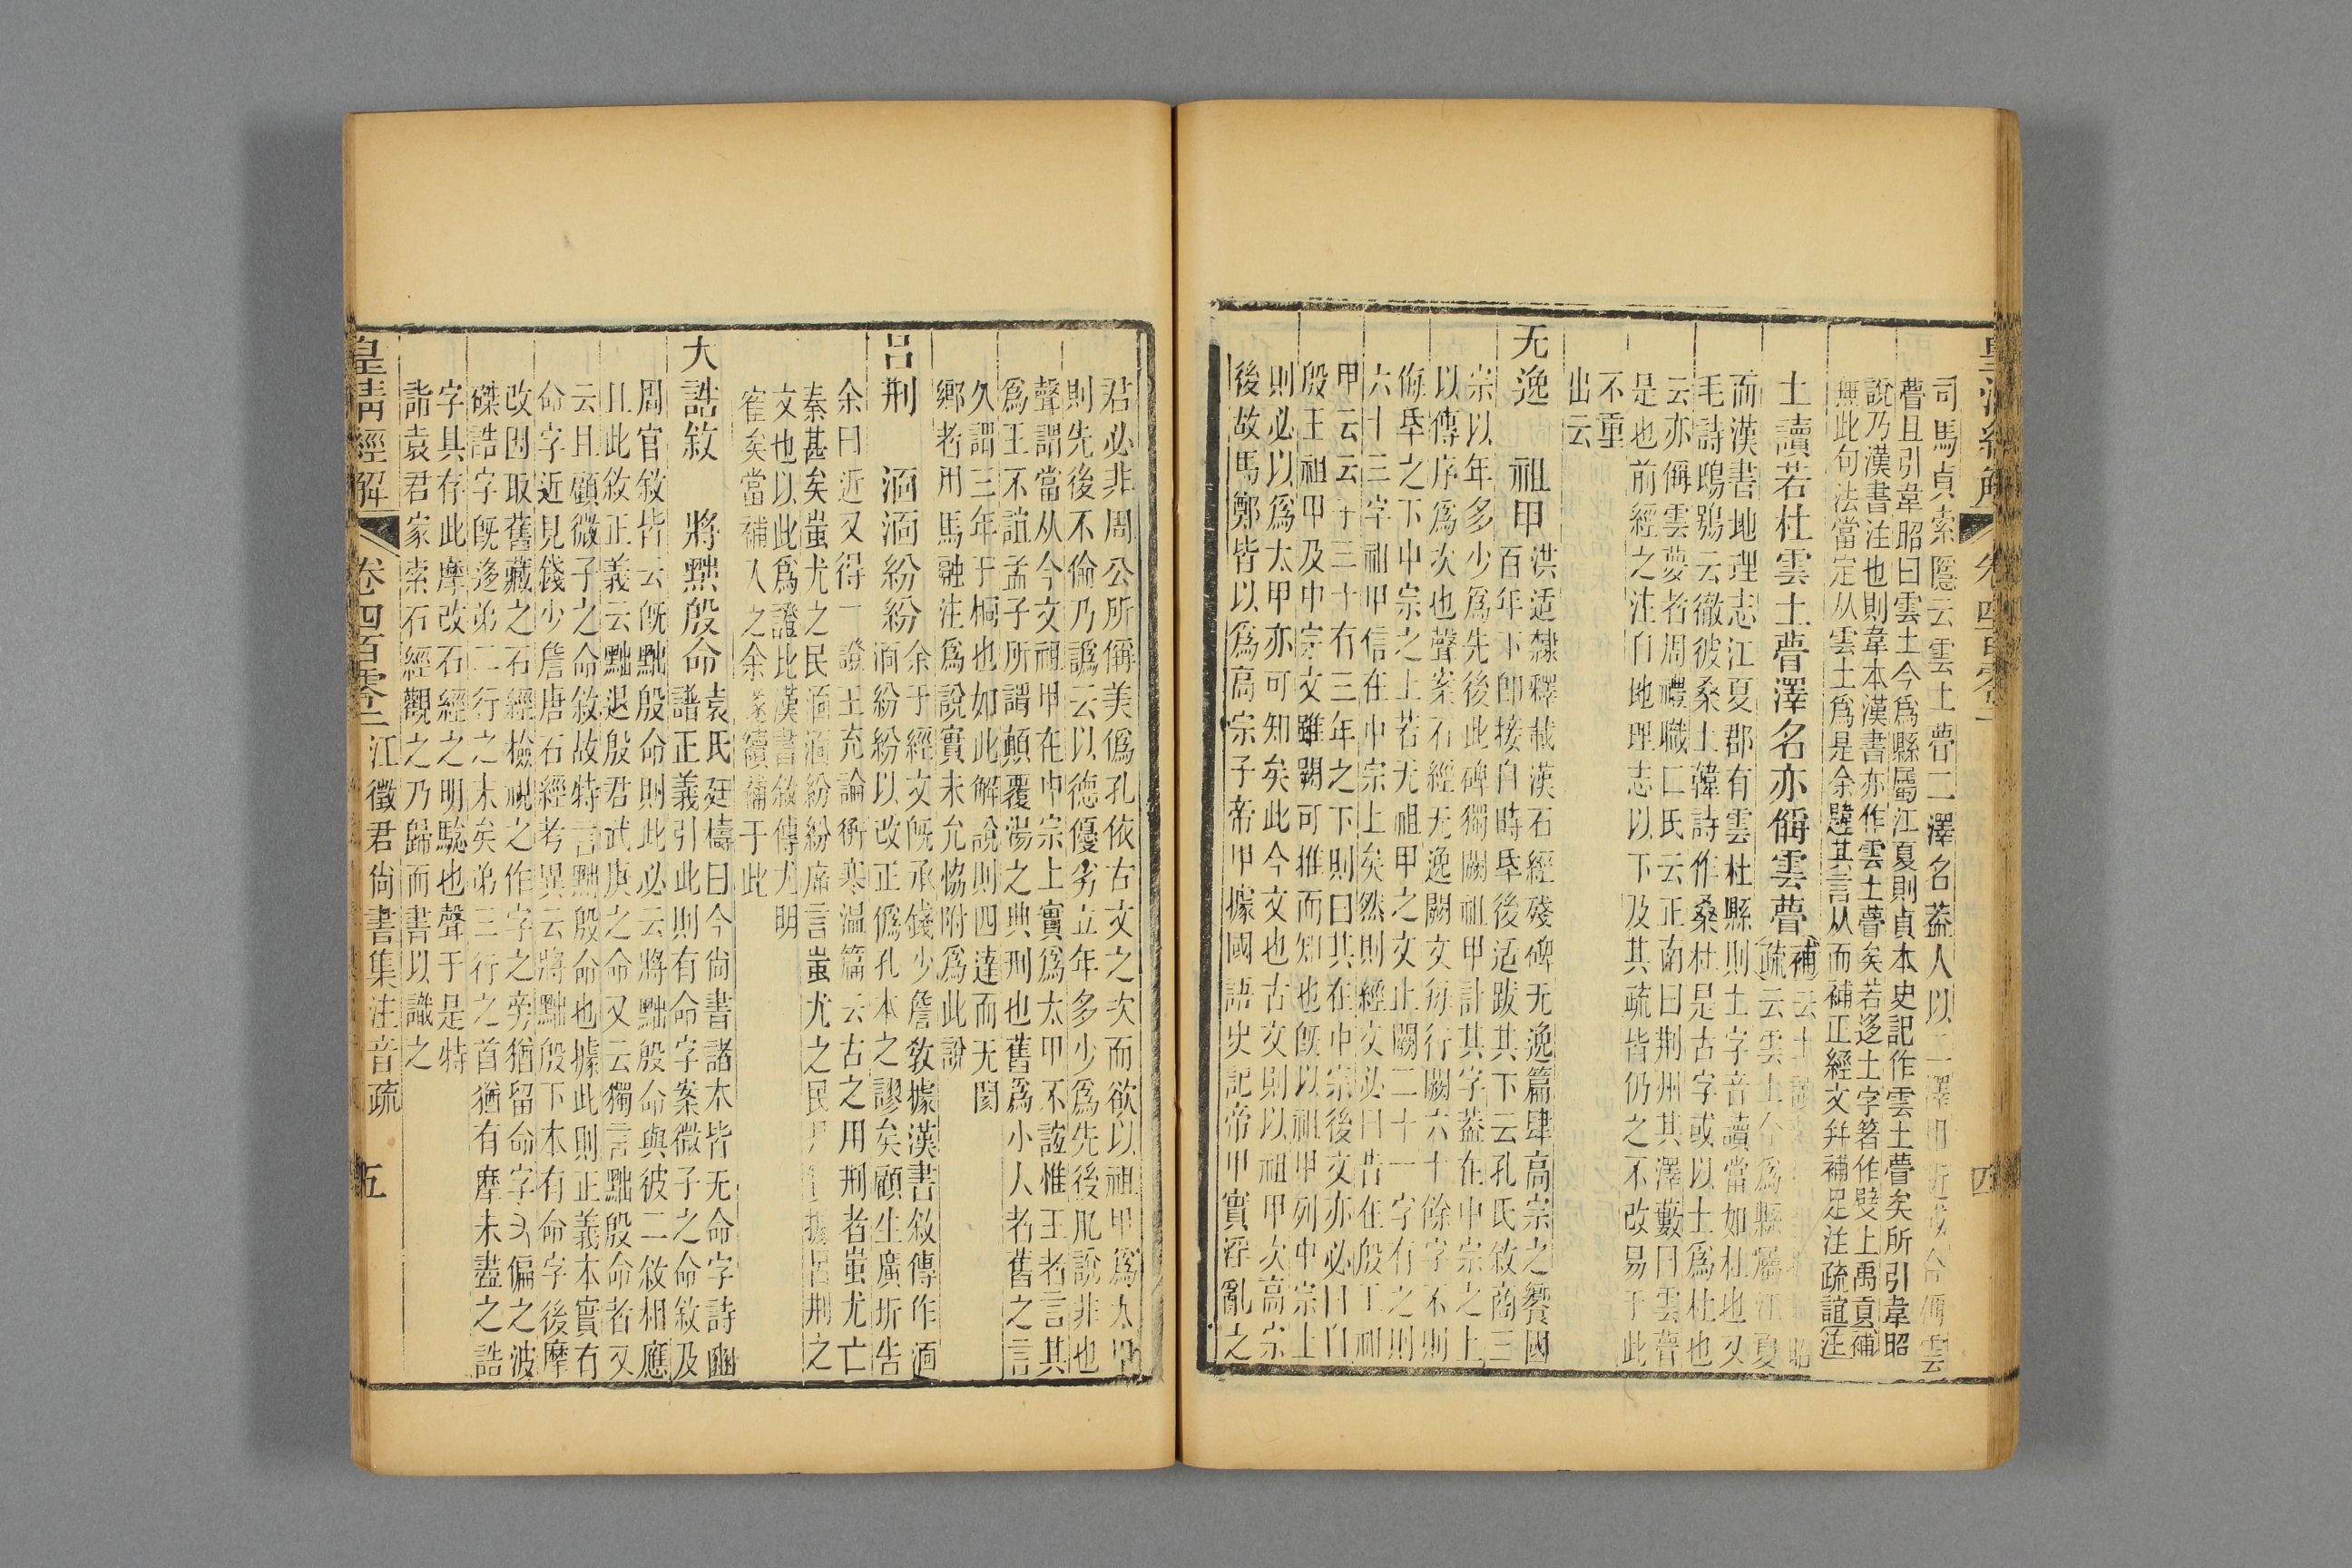 皇清經解
卷四百零二
四
司馬貞索隱云雲土瞢二澤名葢人以二澤
瞢且引韋昭曰雲土今爲縣屬江夏則貞本史記作雲土瞢矣所引韋昭
說乃漢書注也則韋本漢書亦作雲土瞢矣若迻土字箸作夊上禹貢補
無此句法當定从雲土爲是余韙其言从而補正經文幷補足注疏誼注
土讀若杜雲土瞢澤名亦偁雲瞢
補云土
疏云雲土今爲縣屬江夏
而漢書地理志江夏郡有雲杜縣則土字音讀當如杜也又
毛詩鴟鴞云徹彼桑土韓詩作桑杜是古字或以土爲杜也
云亦偁雲夢者周禮職口氏云正南曰荆州其澤藪曰雲瞢
是也前經之注自地理志以下及其疏皆仍之不改易于此
不重
出云
无逸　祖甲
洪适隸釋載漢石經殘碑无逸篇肆高宗之饗國
百年下卽接自時厥後适跋其下云孔氏敘商三
宗以年多少爲先後此碑獨闕祖甲計其字葢在中宗之上
以傳序爲次也聲案石經无逸闕文每行闕六十餘字不則
侮厥之下中宗之上若无祖甲之文止闕二十一字有之則
六十三字祖甲信在中宗上矣然則經文必曰昔在殷王祖
甲云云三十有三年之下則曰其在中宗後文亦必曰自
殷王祖甲及中宗文雖闕可推而知也旣以祖甲列中宗上
則必以爲太甲亦可知矣此今文也古文則以祖甲次高宗
後故馬鄭皆以爲高宗子帝甲據國語史記帝甲實淫亂之
君必非周公所偁美僞孔依古文之次而欲以祖甲爲太甲
則先後不倫乃譌云以德優劣立年多少爲先後凡說非也
聲謂當从今文祖甲在中宗上實爲太甲不誼惟王者言其
爲王不誼孟子所謂顛覆湯之典刑也舊爲小人者舊之言
久謂三年于桐也如此解說則四達而无閡
鄕者用馬融注爲說實未允恊附爲此說
呂刑　湎湎紛紛
余于經文旣承錢少詹敎據漢書敘傳作湎
湎紛紛以改正僞孔本之謬矣顧生廣圻告
余曰近又得一證王充論衡寒溫篇云古之用刑者蚩尤亡
秦甚矣蚩尤之民湎湎紛紛席言蚩尤之民據呂刑之
文也以此爲證比漢書敘傳尤明
寉矣當補人之余遂續補于此
大誥敘　將黜殷命
袁氏廷檮曰今尙書諸本皆无命字詩豳
譜正義引此則有命字案微子之命敘及
周官敘皆云旣黜殷命則此必云將黜殷命與彼二敘相應
且此敘正義云黜退殷君武庚之命又云獨言黜殷命者又
云且顧微子之命敘故特言黜殷命也據此則正義本實有
命字近見錢少詹唐石經考異云將黜殷下本有命字後摩
改因取舊藏之石經檢視之作字之旁猶留命字叧偏之波
磔誥字旣迻弟二行之末矣弟三行之首猶有摩未盡之誥
字具存此摩改石經之明騐也聲于是特
詣袁君家索石經觀之乃歸而書以識之
皇清經解
卷四百零二
江徵君尙書集注音疏
五